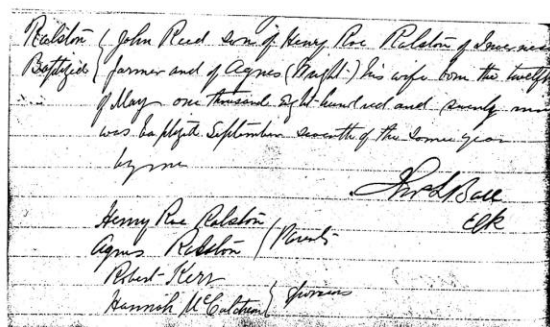 Ralston { John Reed son of Henry Roe Ralston of Inverness
Baptized { farmer and of Agnes (Wright) his wife born the twelfth
of May one thousand eight hundred and seventy nine
was baptized September seventh of the same year
by me
Ball
Henry Roe Ralston
Agnes Ralston } Parents
Robert Kerr
Hannah } sponsors